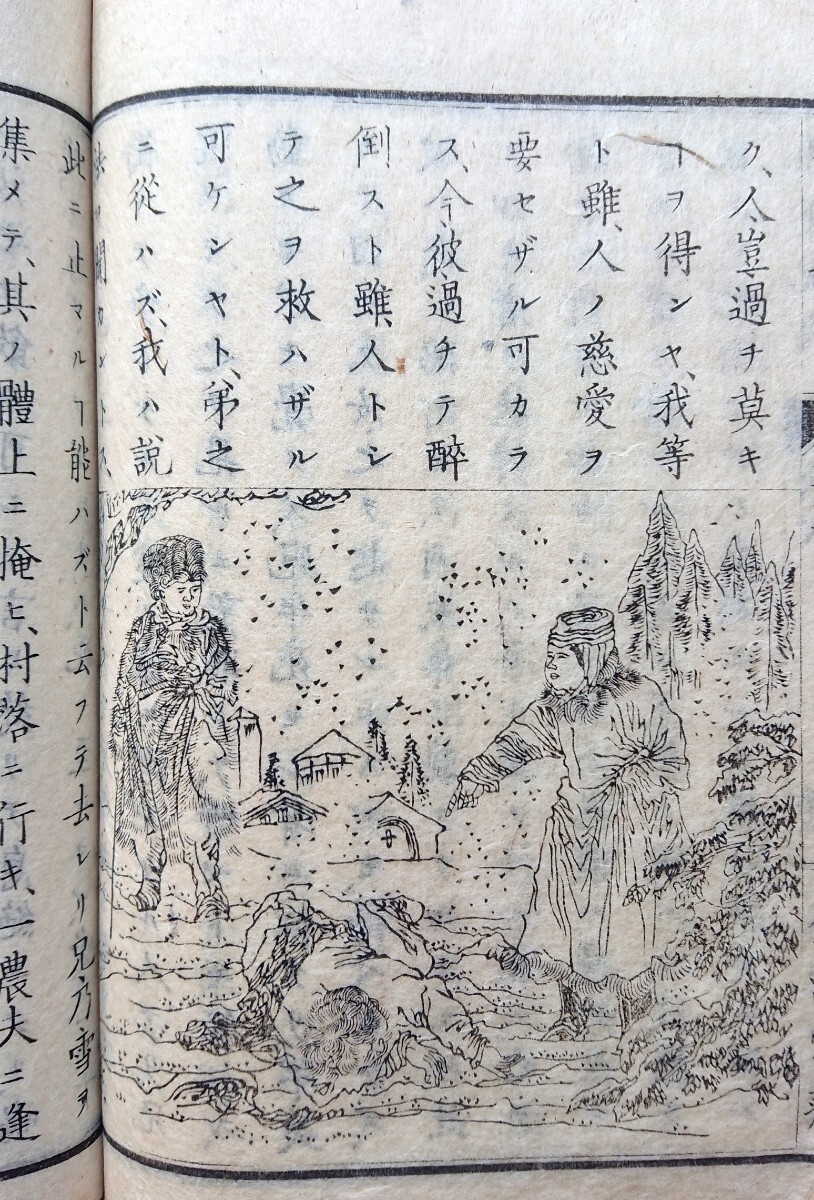 ク、人豈過チ莫キ
ヿヲ得ンヤ、我等
ト雖、人ノ慈愛ヲ
要セザル可カラ
ス、今、彼、過チテ醉
倒スト雖、人トシ
テ之ヲ救ハザル
可ケンヤト、弟之
ニ從ハズ、我ハ説
聞カントス、
此ニ止マルヿ能ハズト云フテ去レリ兄乃雪ヲ
集メテ、其ノ體上ニ掩ヒ、村落ニ行キ、一農夫ニ逢